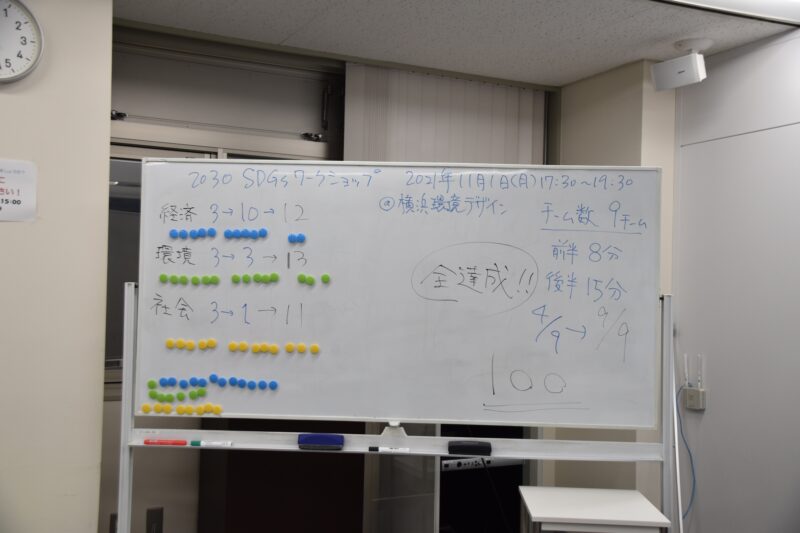 2030 SDGsワークショップ 2021年11月1日(月)17:30~19:30
@横浜環境デザイン
経済 3→10→12
環境 3→3→13
社会 3→1→11
チーム数 9チーム
前半 8分
後半 15分
4/9→9/9
全達成!!
100
1
2
3
4
5
さい!
15:00